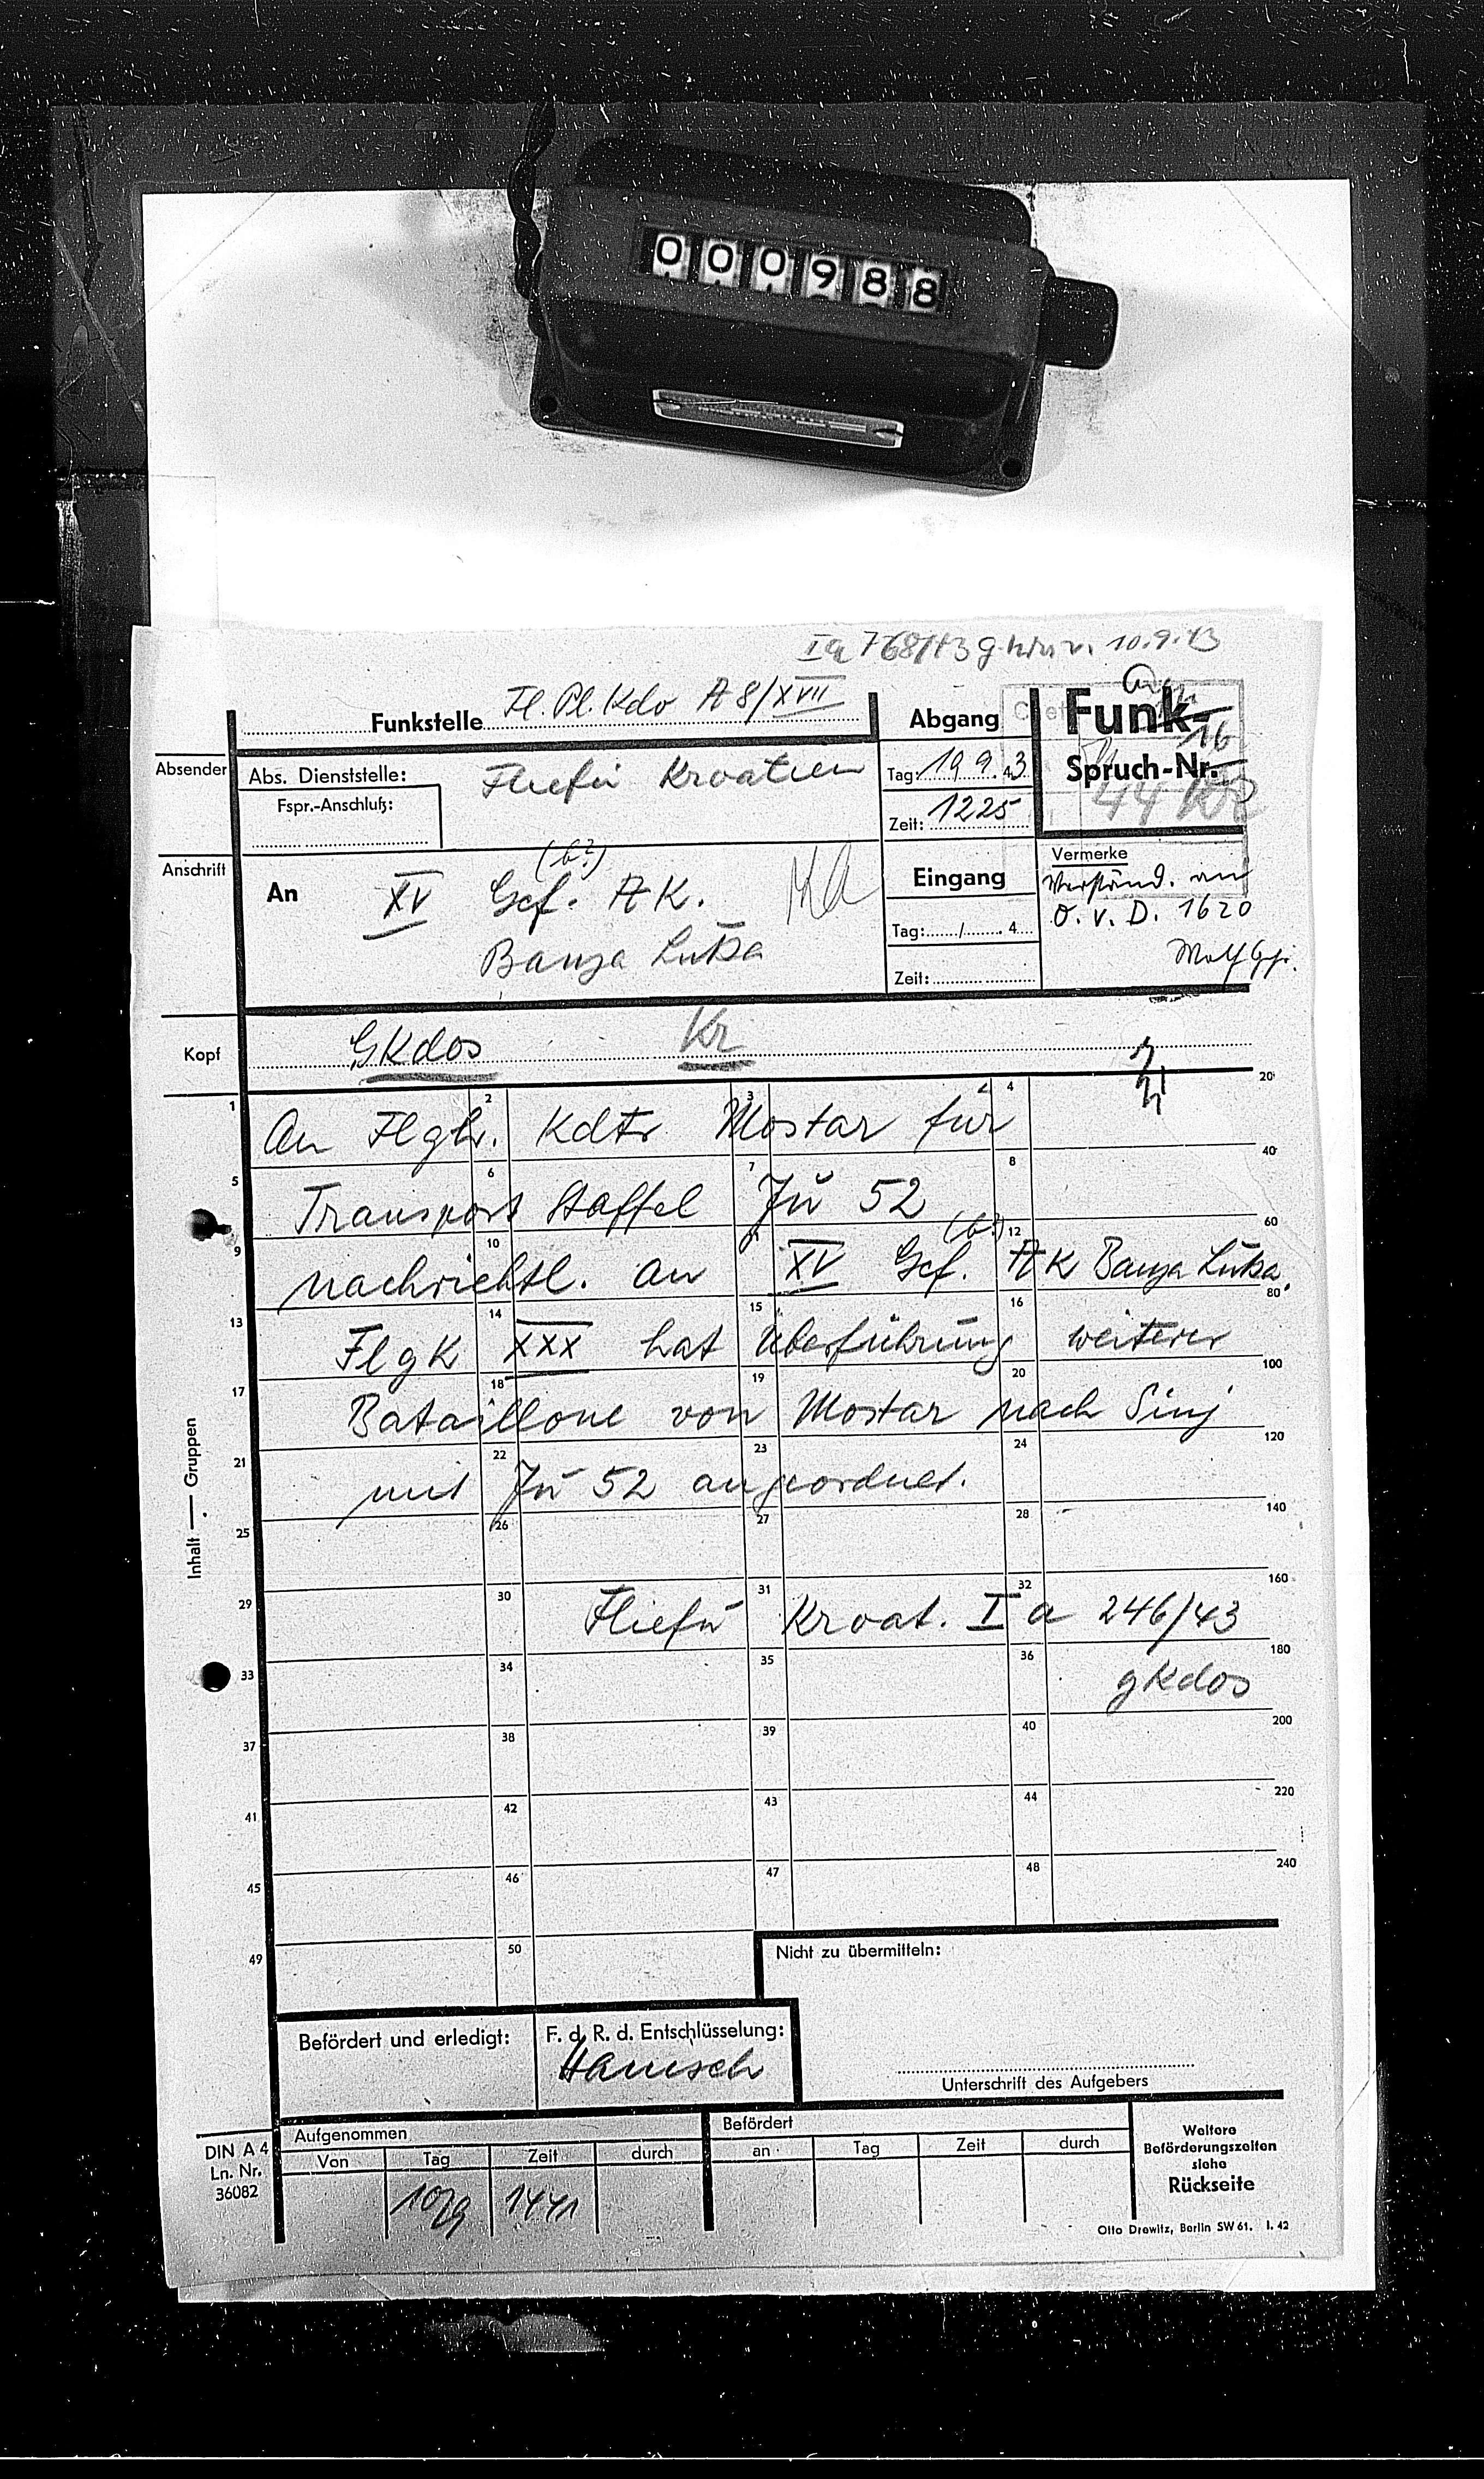 000988
Ia 768/43 g. 10.9.43
Funkstelle Fl. Pl. Kdo A 8/XVII
Abgang
Funk-
Spruch-Nr.
16
44
Absender
Abs. Dienststelle: Fliefü Kroatien
Fspr.-Anschluß:
Tag: 10 9. 43
Zeit: 1225
Anschrift
An XV Gef. (b?) A K.
Banja Luka
Eingang
Tag: / . 4
Zeit:
Vermerke
Verständ. an
O. v. D. 1620
Kopf
GKdos Kr
Inhalt — Gruppen
1 2 3 4 20
An Flgh. Kdtr Mostar für
5 6 7 8 40
Transport Staffel Jŭ 52
9 10 11 12 60
nachrichtl. an XV Gef. (b?) A K Banja Luka.
13 14 15 16 80
Fl g K XXX hat Überführung weiterer
17 18 19 20 100
Bataillone von Mostar nach Sinj
21 22 23 24 120
mit Jŭ 52 angeordnet.
25 26 27 28 140
29 30 31 32 160
Fliefü Kroat. I a 246/43
33 34 35 36 180
gKdos
37 38 39 40 200
41 42 43 44 220
45 46 47 48 240
49 50
Nicht zu übermitteln:
Befördert und erledigt:
F. d. R. d. Entschlüsselung:
Hanisch
Unterschrift des Aufgebers
DIN A 4
Ln. Nr.
36082
Aufgenommen
Von Tag Zeit durch
10/9 1441
Befördert
an Tag Zeit durch
Weitere
Beförderungszeiten
siehe
Rückseite
Otto Drewitz, Berlin SW 61. I. 42